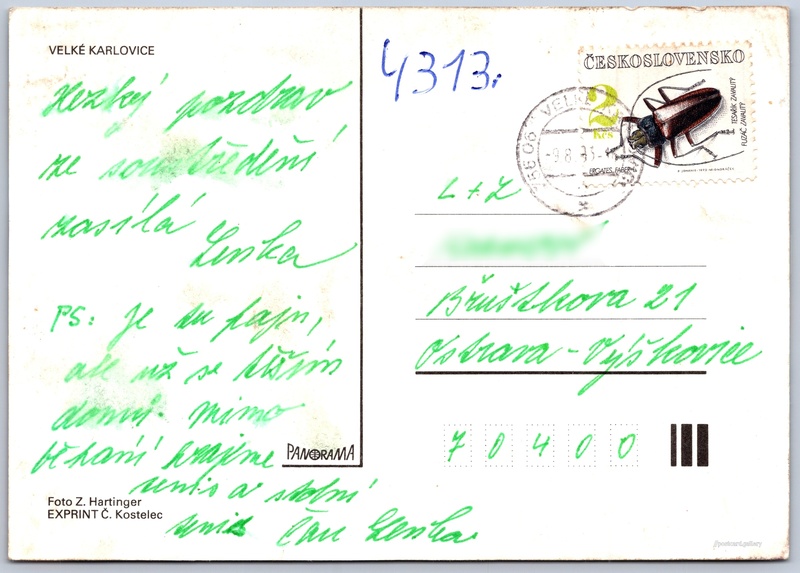 VELKÉ KARLOVICE
Hezký pozdrav
ze soustředění
zasílá
Lenka
PS: Je tu fajn,
ale už se těším
domů. Mimo
běhání hrajme
tenis a stolní
tenis Čau Lenka
PANORAMA
Foto Z. Hartinger
EXPRINT Č. Kostelec
4313.
ČESKOSLOVENSKO
2
Kčs
TESAŘÍK ZAVALITÝ
FUZÁČ ZAVALITÝ
ERGATES FABER
VELKÉ
756 06
-9.8.93-
L + L
Břustkova 21
Ostrava - Výškovice
70400